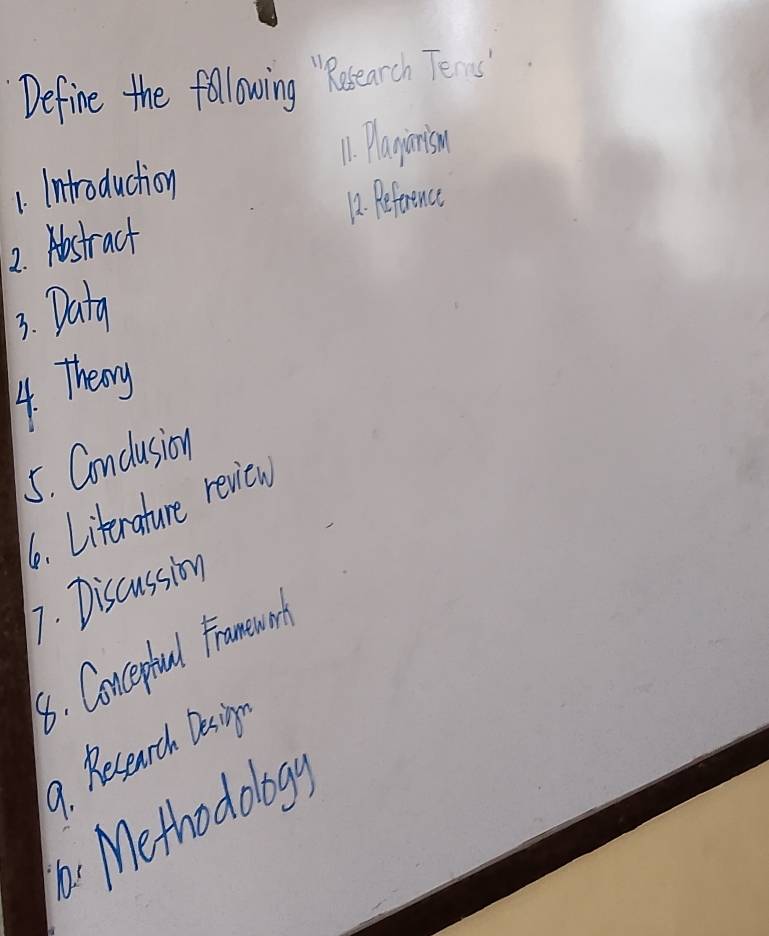 Define the following "Research Terms"
1. Introduction
2. Abstract
3. Data
4. Theory
5. Conclusion
6. Literature review
7. Discussion
8. Conceptual Framework
9. Research Design
10. Methodology
11. Plagiarism
12. Reference